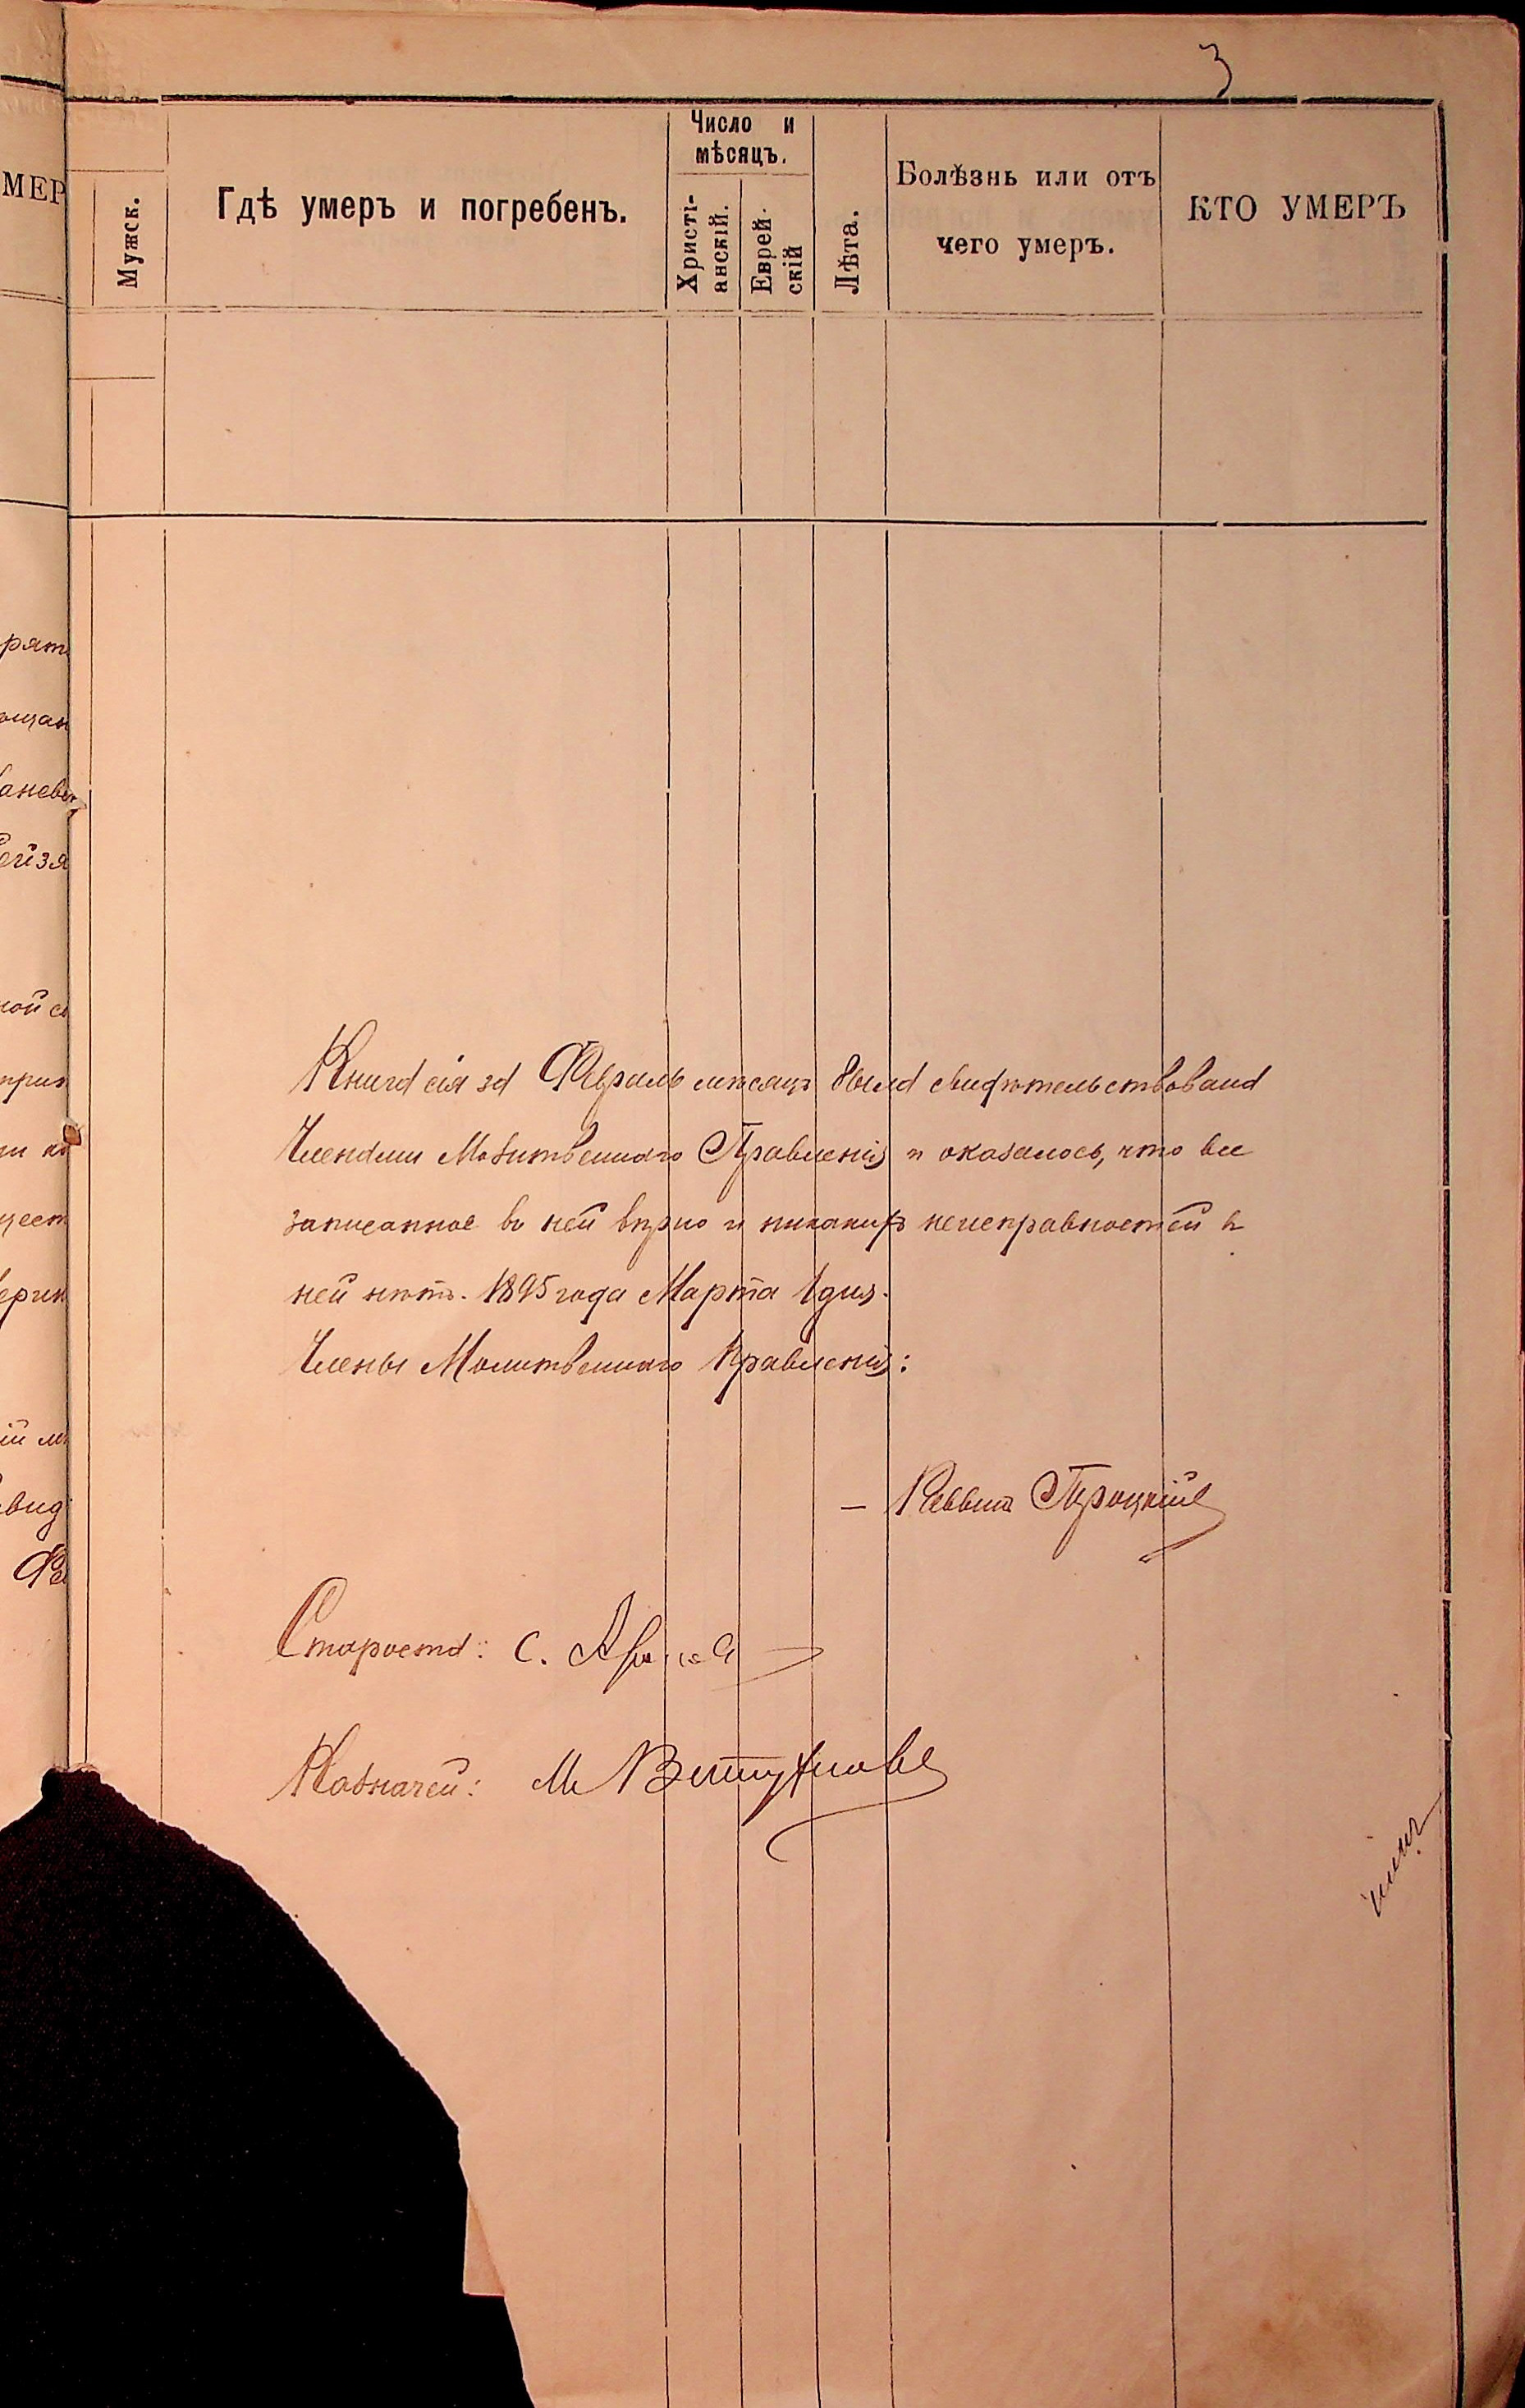 3
Число и
мѣсяцъ.
МЕР
Мужск.
Гдѣ умеръ и погребенъ.
Христі-
анскій.
Еврей-
скій
Лѣта.
Болѣзнь или отъ
чего умеръ.
КТО УМЕРЪ
Книга сія за Февраль мѣсяцъ была свидѣтельствована
Членами Молитвеннаго Правленія и оказалось, что все
записанное въ ней вѣрно и никакихъ неисправностей въ
ней нѣтъ. 1895 года Марта 1 дня.
Члены Молитвеннаго Правленія:
— Раввинъ Троцкій
Староста: С.
Казначей: М